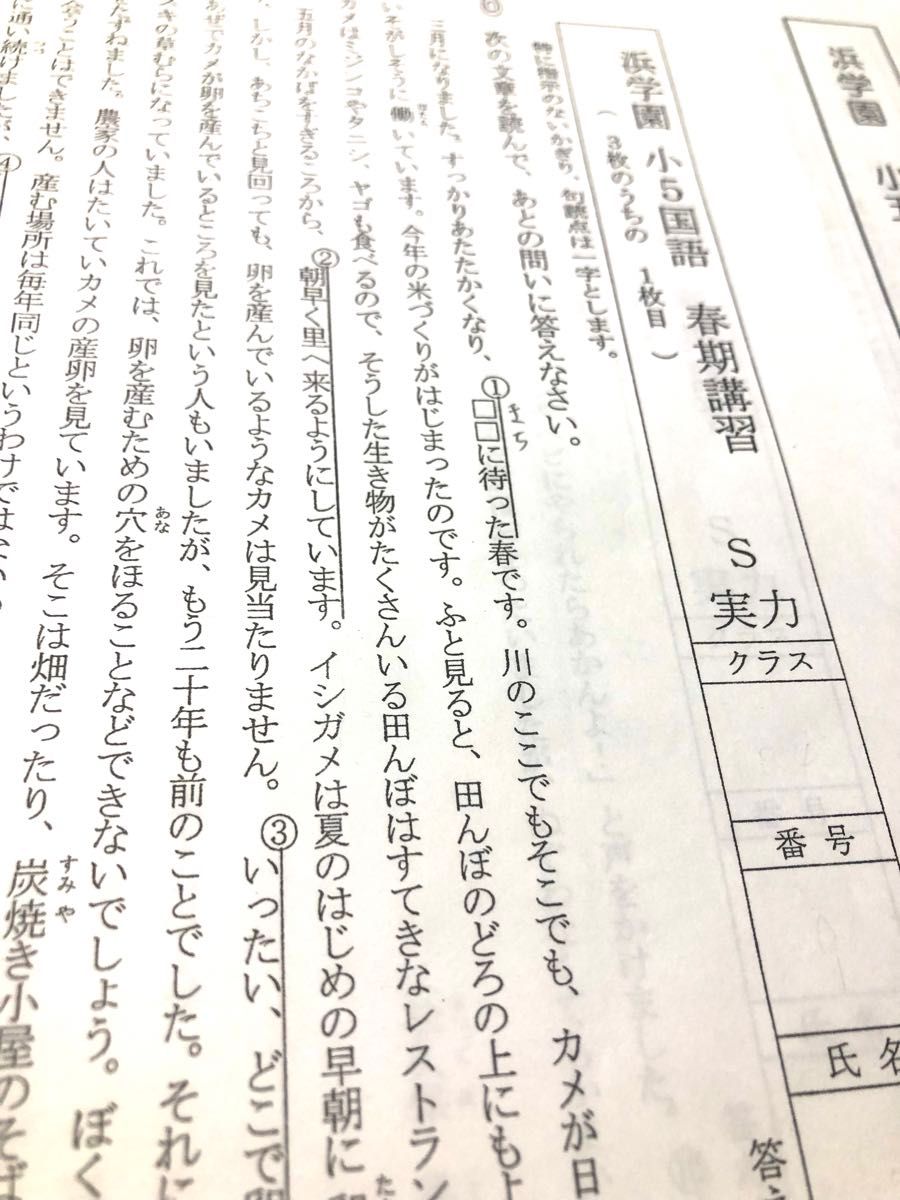 浜学園 小
浜学園 小5国語 春期講習 S 実力
(3枚のうちの 1枚目)
クラス
番号
氏名
答
特に指示のないかぎり、句読点は一字とします。
次の文章を読んで、あとの問いに答えなさい。
三月になりました。すっかりあたたかくなり、①□□に待った春です。川のここでもそこでも、カメが日
まち
いそがしそうに働いています。今年の米づくりがはじまったのです。ふと見ると、田んぼのどろの上にもよ
カメはミジンコやタニシ、ヤゴも食べるので、そうした生き物がたくさんいる田んぼはすてきなレストラン
五月のなかばをすぎるころから、②朝早く里へ来るようにしています。イシガメは夏のはじめの早朝に
しかし、あちこちと見回っても、卵を産んでいるようなカメは見当たりません。③いったい、どこで卵
あぜでカメが卵を産んでいるところを見たという人もいましたが、もう二十年も前のことでした。それに
スキの草むらになっていました。これでは、卵を産むための穴をほることなどできないでしょう。ぼく
あな
たずねました。農家の人はたいていカメの産卵を見ています。そこは畑だったり、炭焼き小屋のそば
すみ や
ことはできません。産む場所は毎年同じというわけではない
に通い続けましたが、④